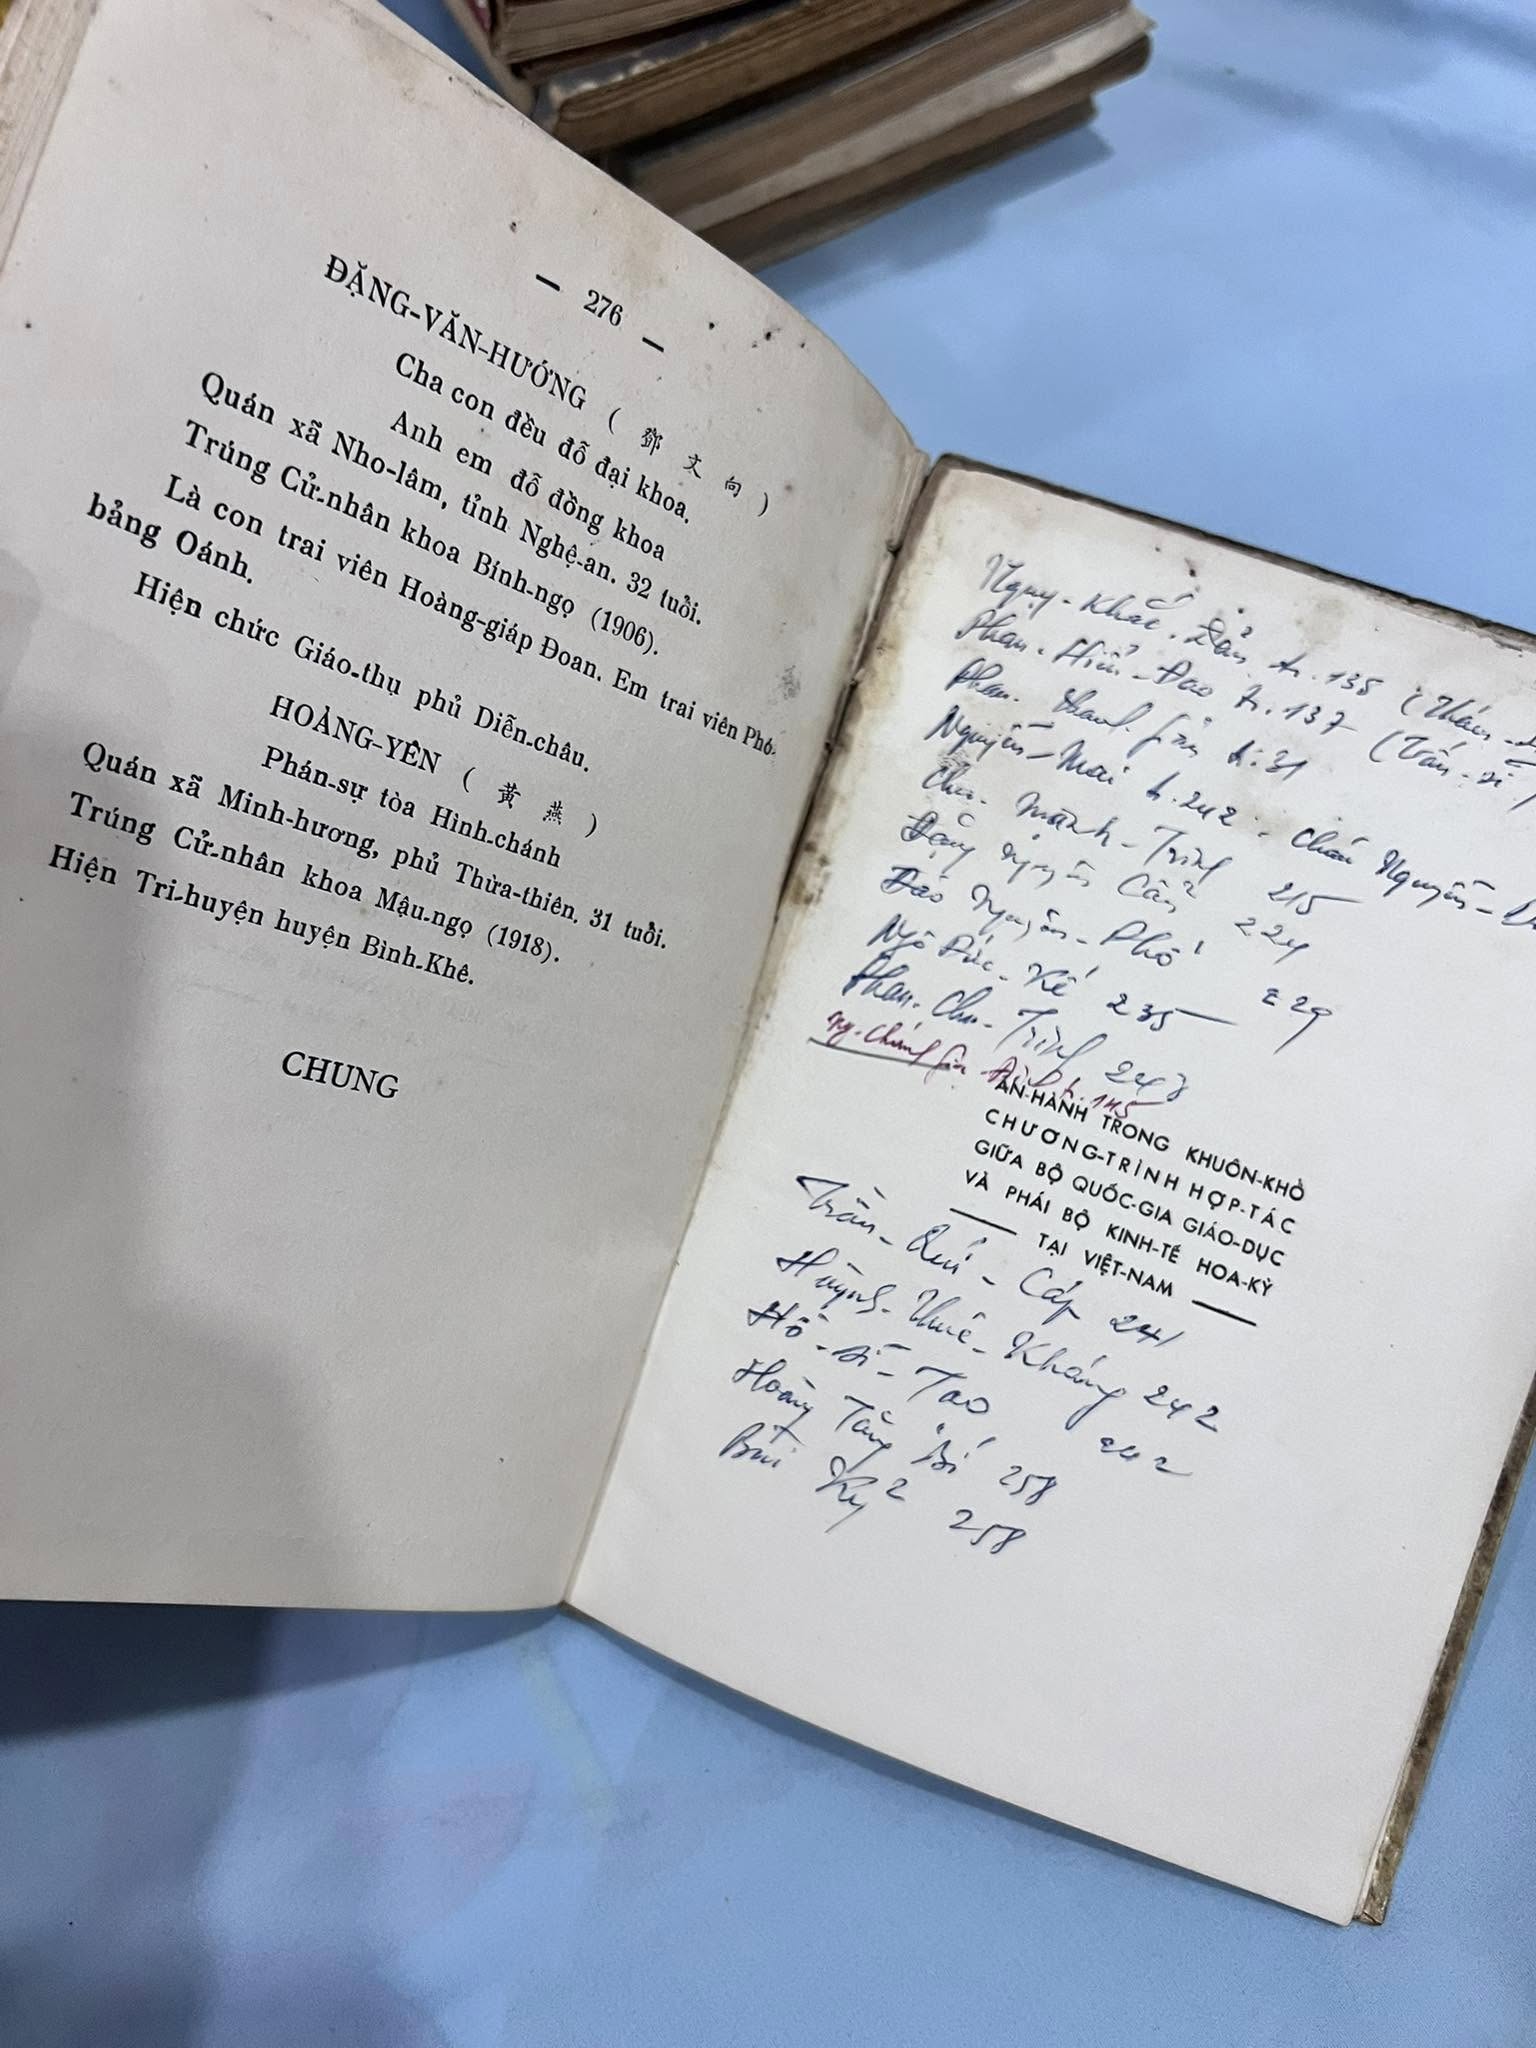 — 276 —
ĐẶNG-VĂN-HƯỚNG ( 鄧 文 向 )
Cha con đều đỗ đại khoa.
Anh em đỗ đồng khoa
Quán xã Nho-lâm, tỉnh Nghệ-an. 32 tuổi.
Trúng Cử-nhân khoa Bính-ngọ (1906).
Là con trai viên Hoàng-giáp Đoan. Em trai viên Phó-
bảng Oánh.
Hiện chức Giáo-thụ phủ Diễn-châu.
HOÀNG-YẾN ( 黃 燕 )
Phán-sự tòa Hình-chánh
Quán xã Minh-hương, phủ Thừa-thiên. 31 tuổi.
Trúng Cử-nhân khoa Mậu-ngọ (1918).
Hiện Tri-huyện huyện Bình-Khê.
CHUNG
Ngụy-Khắc-Đản tr. 135 (Thám
Phan-Hiển-Đạo tr. 137 (Tấn-sĩ)
Phan-Thanh-Giản tr. 31
Nguyễn-Mai tr. 242 - cháu Nguyễn-
Chu-Mạnh-Trinh 215
Đặng Nguyên Cẩn 224
Đào Nguyên-Phổ 229
Ngô Đức-Kế 235
Phan-Chu-Trinh 248
tr. 145
ẤN-HÀNH TRONG KHUÔN-KHỔ
CHƯƠNG-TRÌNH HỢP-TÁC
GIỮA BỘ QUỐC-GIA GIÁO-DỤC
VÀ PHÁI BỘ KINH-TẾ HOA-KỲ
TẠI VIỆT-NAM
Trần-Quí-Cáp 241
Huỳnh-Thúc-Kháng 242
Hồ-Sĩ-Tạo 242
Hoàng Tăng Bí 258
Bùi Kỷ 258